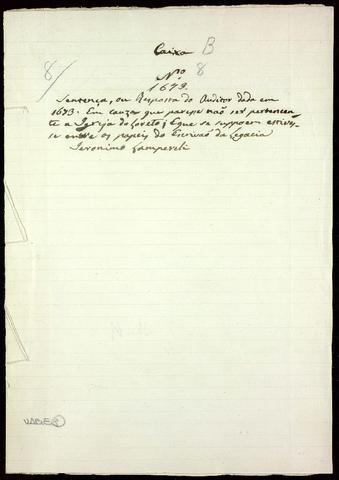 Caixa B
8/
Nro 8
1673.
Sentença, ou Resposta do Auditor dada em
1673. Em cauza que parece não ser pertencen-
te a Igreja do Loreto; Eque se suppoem estives-
se entre os papeis do Escrivaõ da Legacia
Jeronimo